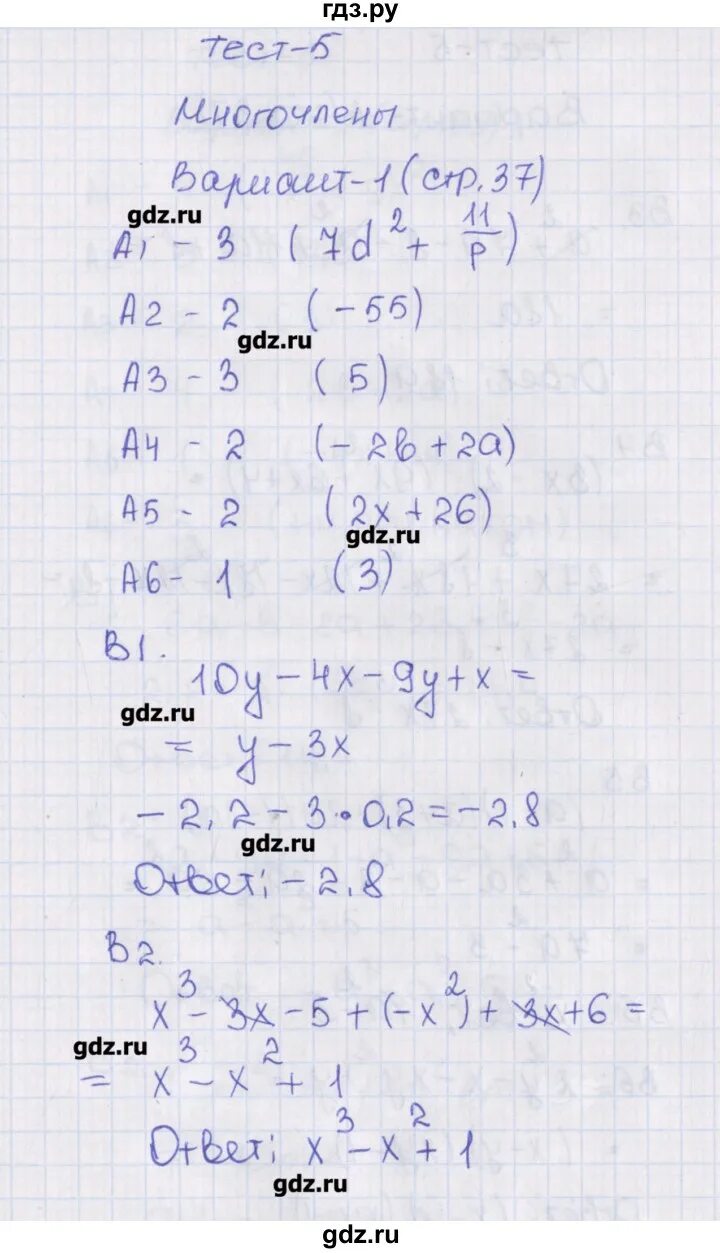 гдз.ру
Тест-5
Многочлены
Вариант-1 (стр. 37)
gdz.ru
А1 - 3 (7d² + 11/p)
А2 - 2 (-55)
gdz.ru
А3 - 3 (5)
А4 - 2 (-2b+2a)
А5 - 2 (2x+26)
gdz.ru
А6 - 1 (3)
В1.
10y-4x-9y+x=
gdz.ru
= y-3x
-2,2-3·0,2=-2,8
gdz.ru
Ответ: -2,8
В2.
x³-3x-5+(-x²)+3x+6=
gdz.ru
= x³-x²+1
Ответ: x³-x²+1
gdz.ru
gdz.ru